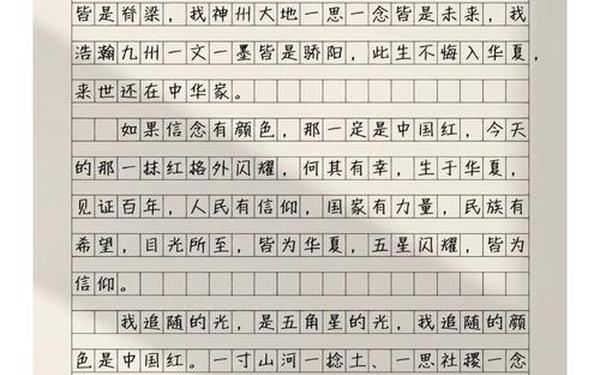 皆是脊梁，我神州大地一思一念皆是未来，我
浩瀚九州一文一墨皆是骄阳，此生不悔入华夏，
来世还在中华家。
如果信念有颜色，那一定是中国红，今天
的那一抹红格外闪耀，何其有幸，生于华夏，
见证百年，人民有信仰，国家有力量，民族有
希望，目光所至，皆为华夏，五星闪耀，皆为
信仰。
我追随的光，是五角星的光，我追随的颜
色是中国红。一寸山河一捻土、一思社稷一念